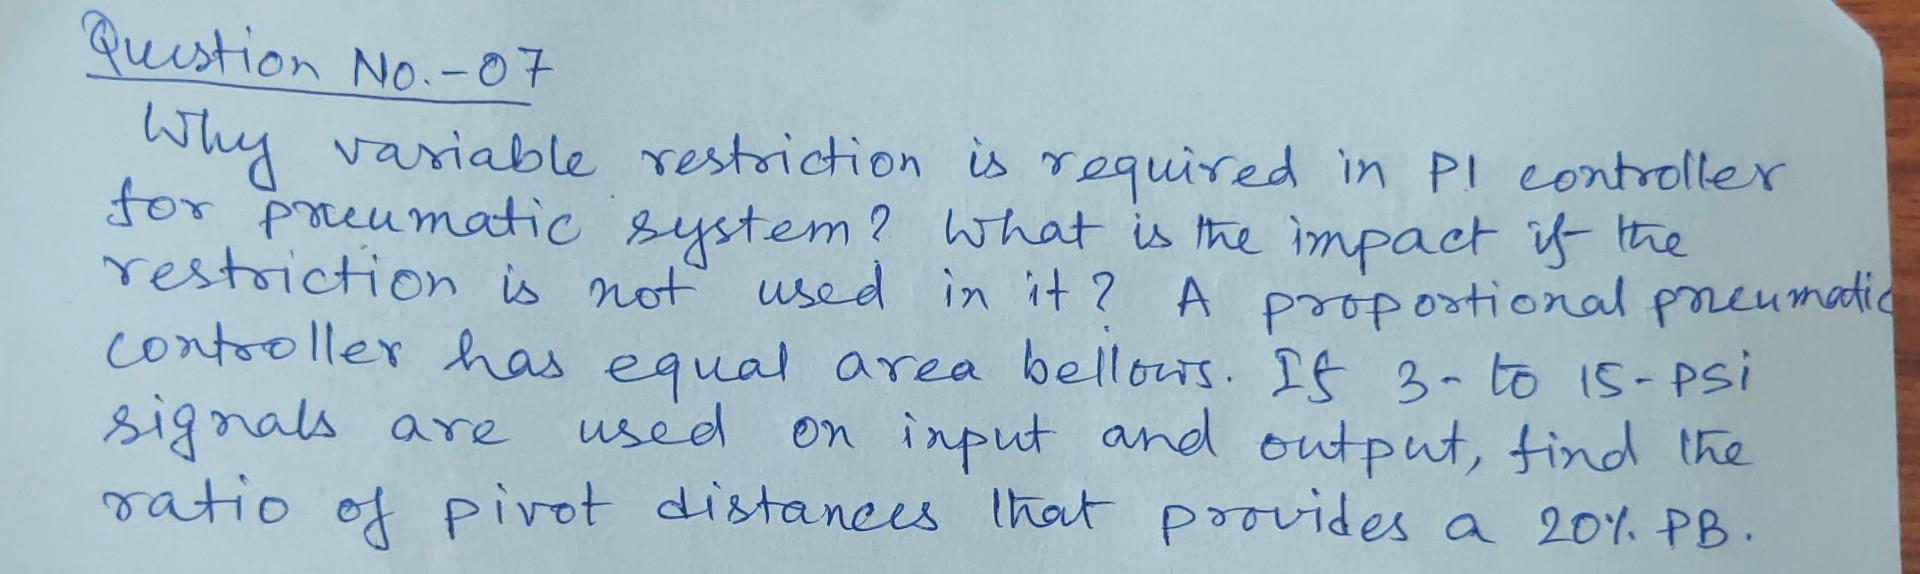 Question No.-07
Why variable restriction is required in PI controller
for pneumatic system? What is the impact if the
restriction is not used in it? A proportional pneumatic
controller has equal area bellows. If 3- to 15-psi
signals are used on input and output, find the
ratio of pivot distances that provides a 20% PB.